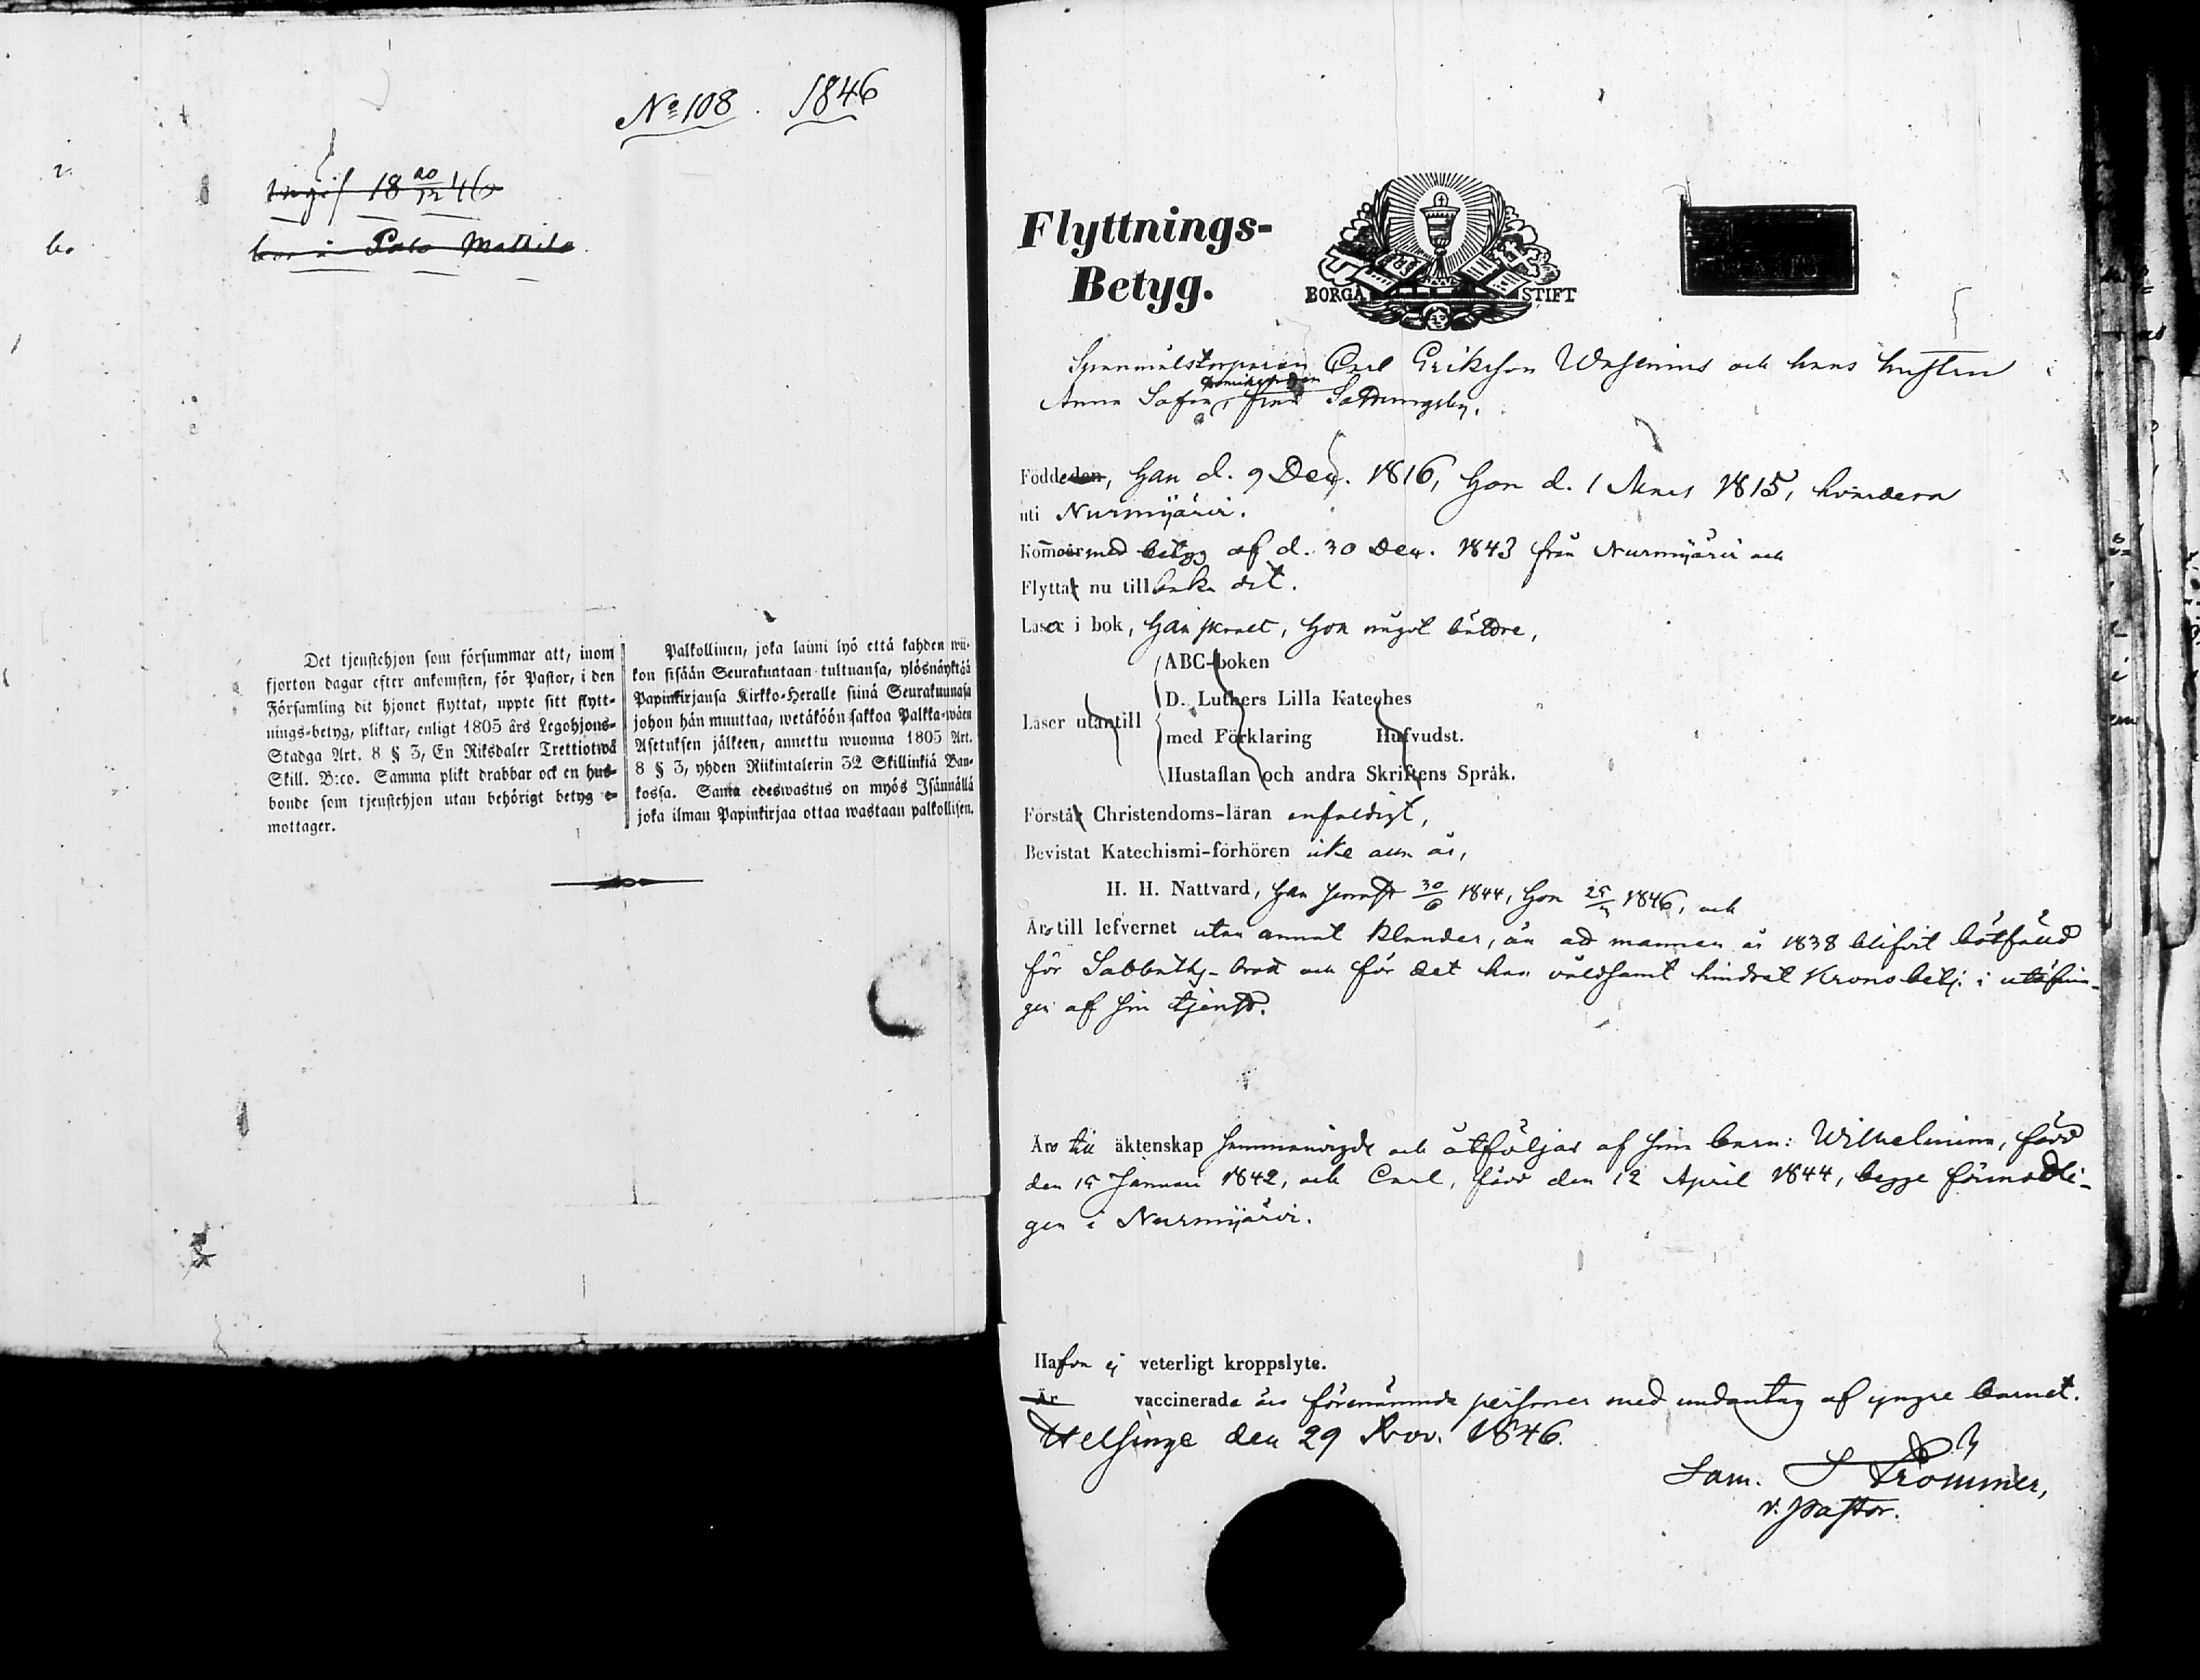 No 108. 1846
ingif 18 20/12 46
bor i Palo Mattila
Det tjenstehjon som försummar att, inom
fjorton dagar efter ankomsten, för Pastor, i den
Församling dit hjonet flyttat, uppte sitt flytt-
nings-betyg, pliktar, enligt 1805 års Legohjons-
Stadga Art. 8 § 3, En Riksdaler Trettiotwå
Skill. B:co. Samma plikt drabbar ock en hus-
bonde som tjenstehjon utan behörigt betyg e-
mottager.
Palkollinen, joka laimi lyö että kahden wii-
kon sisään Seurakuntaan tultuansa, ylösnäyttää
Papinkirjansa Kirkko-Heralle siinä Seurakunnasa
johon hän muuttaa, wetäköön sakkoa Palkka-wäen
Asetuksen jälkeen, annettu wuonna 1805 Art.
8 § 3, yhden Riikintalerin 32 Skillinkiä Ban-
kossa. Sama edeswastus on myös Isännällä
joka ilman Papinkirjaa ottaa wastaan palkollisen.
Flyttnings-
Betyg.
BORGÅ STIFT
Carl Erikson Waslenius och hans hustru
Anna Sofia, från
Födde den, Han d. 9 Dec. 1816, Hon d. 1 Mars 1815, hvardera
uti Nurmijärvi.
Komne med betyg af d. 30 Dec. 1843 från Nurmijärvi och
Flytta nu tillbaka dit.
Läsa i bok, Han svalt, Hon något bättre,
Läser utantill
ABC-boken
D. Luthers Lilla Kateches
med Förklaring Hufvudst.
Hustaflan och andra Skriftens Språk.
Förstå Christendoms-läran enfaldigt,
Bevistat Katechismi-förhören icke alla år,
H. H. Nattvard, Han senast 30/6 1844, Hon 1846, och
Äro till lefvernet utan annat klander, än att mannen år 1838 blifvit bötfäld
för Sabbaths-brott och för det han våldsamt hindrat Kronobetj. i utöfnin-
gen af sin tjenst.
Äro till äktenskap sammanvigde och åtföljas af sina barn: Wilhelmina, född
den 15 Januari 1842, och Carl, född den 12 April 1844, begge förmodli-
gen i Nurmijärvi.
Hafva ej veterligt kroppslyte.
Är vaccinerade äro förenämnde personer med undantag af yngre barnet.
Helsinge den 29 Nov. 1846.
Sam. Strömmer,
v. Pastor.